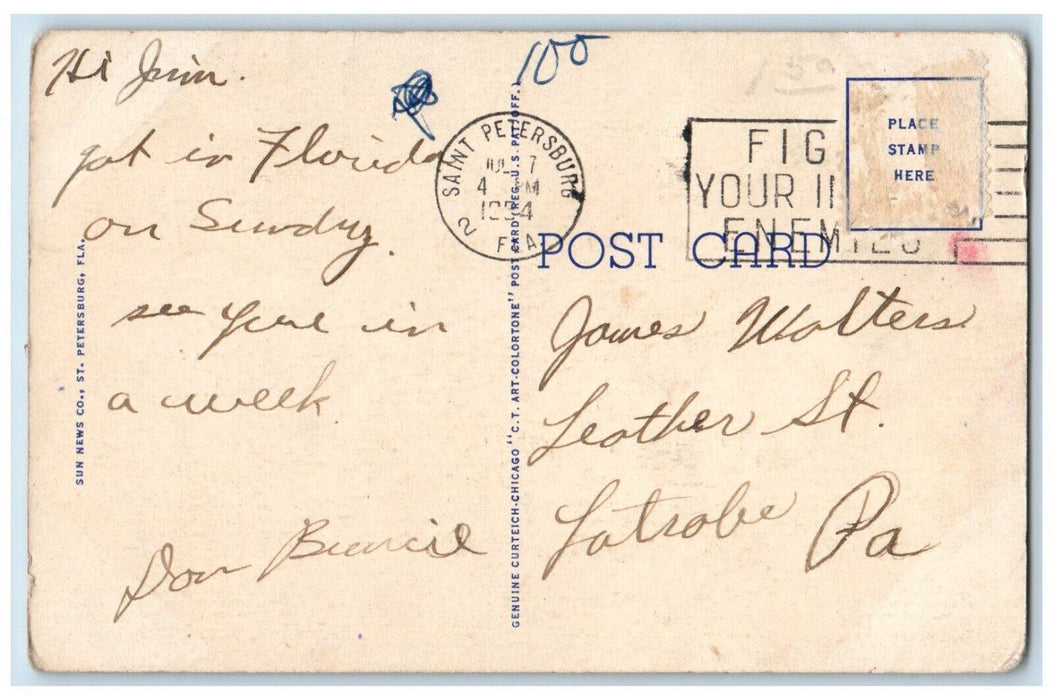 Hi Jim.
got in Florida
on Sunday.
see you in
a week
Don
100
SAINT PETERSBURG
JUL 7
4 PM
1954
2 FLA.
FIG
YOUR
ENEMIES
PLACE
STAMP
HERE
POST CARD
James Walters
Leather St.
Latrobe Pa
SUN NEWS CO., ST. PETERSBURG, FLA.
GENUINE CURTEICH-CHICAGO "C. T. ART-COLORTONE" POST CARD (REG. U.S. PAT. OFF.)